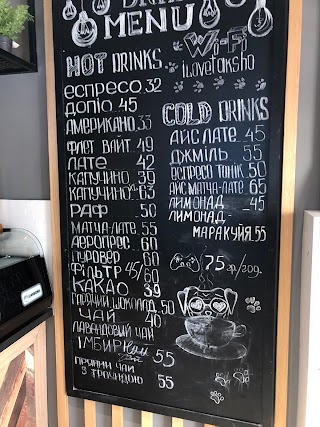 MENU
Wi-Fi
ilovetaksho
HOT DRINKS
COLD DRINKS
еспресо 32
допіо 45
американо 33
флет вайт 49
лате 42
капучіно 39
капучіно XL 63
раф 50
матча-лате 55
аеропрес 60
пуровер 60
фільтр 45/60
какао 39
гарячий шоколад 50
чай 40
лавандовий чай
імбирний 55
пряний чай
з грушою 55
айс лате 45
джміль 55
еспресо тонік 50
айс матча-лате 65
лимонад 45
лимонад-
маракуйя 55
75 гр/год.